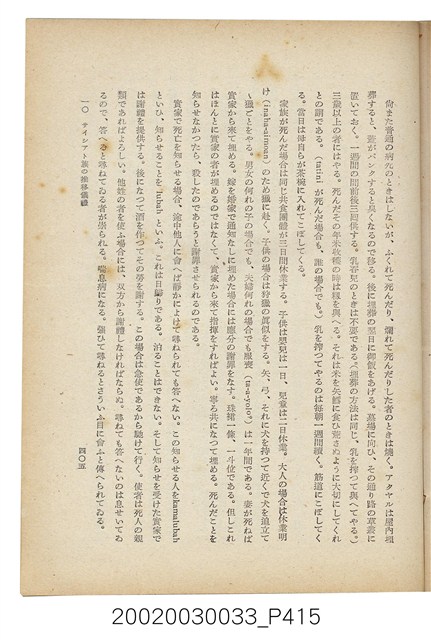 尙また普通の病氣のときはしないが、ふくれて死んだり、爛れて死んだりした者のときは燒く。アタヤルは屋內埋
葬すると、壺がパンクすると臭くなるので移る。後に埋葬の翌日は御飯をあげる。墓場に向ひ、その通り路の草叢に
置いておく。一週間の間前後三回供する。乳呑兒のときは不要である。埋葬の方法は同じ、乳を搾つて與へてやる。
三歲以上の者にはやる。死んだその年米收穫の時は粟を與へる。それは米を矢鱈に食ひ荒さぬように大切にしてくれ
との謂である。(tatini が死んだ場合も、誰の場合でも。) 乳を搾つてやるのは每朝一週間續く。筋道にこぼしてく
る。當日は母自らが茶碗に入れてこぼしてくる。
家族が死んだ場合は同じ共食團體が三日間休業する。子供は嬰兒は一日、兒童は二日休業。大人の場合は休業明
け のため獵に赴く。子供の場合は狩獵の眞似をする。矢、弓、それに犬を持つて近くで犬を追立て
獵ごとをやる。男女の何れの子の場合でも、夫婦何れの場合でも服喪 は一年間である。妻が死ねば
實家から來て埋める。嫁を婚家で通知なしに埋めた場合には應分の謝罪をなす。珠裙一條、一斗位である。但しこれ
はほんとに實家の者が埋めるのではなくて、實家から來て指揮をすればよい。寧ろ共になつて埋める。死んだことを
知らせなかつたら、殺したのであらうと謝罪させられるのである。
實家で死亡を知らせる場合、途中他人に會へば靜かによけて尋ねられても答へない。この知らせる人を kamalubah
といひ、知らせることを lubah といふ。これは日歸りである。泊ることはできない。そして知らせを受けた實家で
は謝禮を提供する。後になつて酒を作つてその勞を謝する。この場合は急使であるから馳けて行く。使者は死人の親
類であればよろしい。他姓の者を使ふ場合には、双方から謝禮しなければならぬ。尋ねても答へないのは息せいてゐ
るので、答へると尋ねてゐる者が祟られる。喘息病になる。强ひて尋ねるとさういふ目に會ふと傳へられてゐる。
一〇 サイシアト族の推移儀禮
四〇五
20020030033_P415